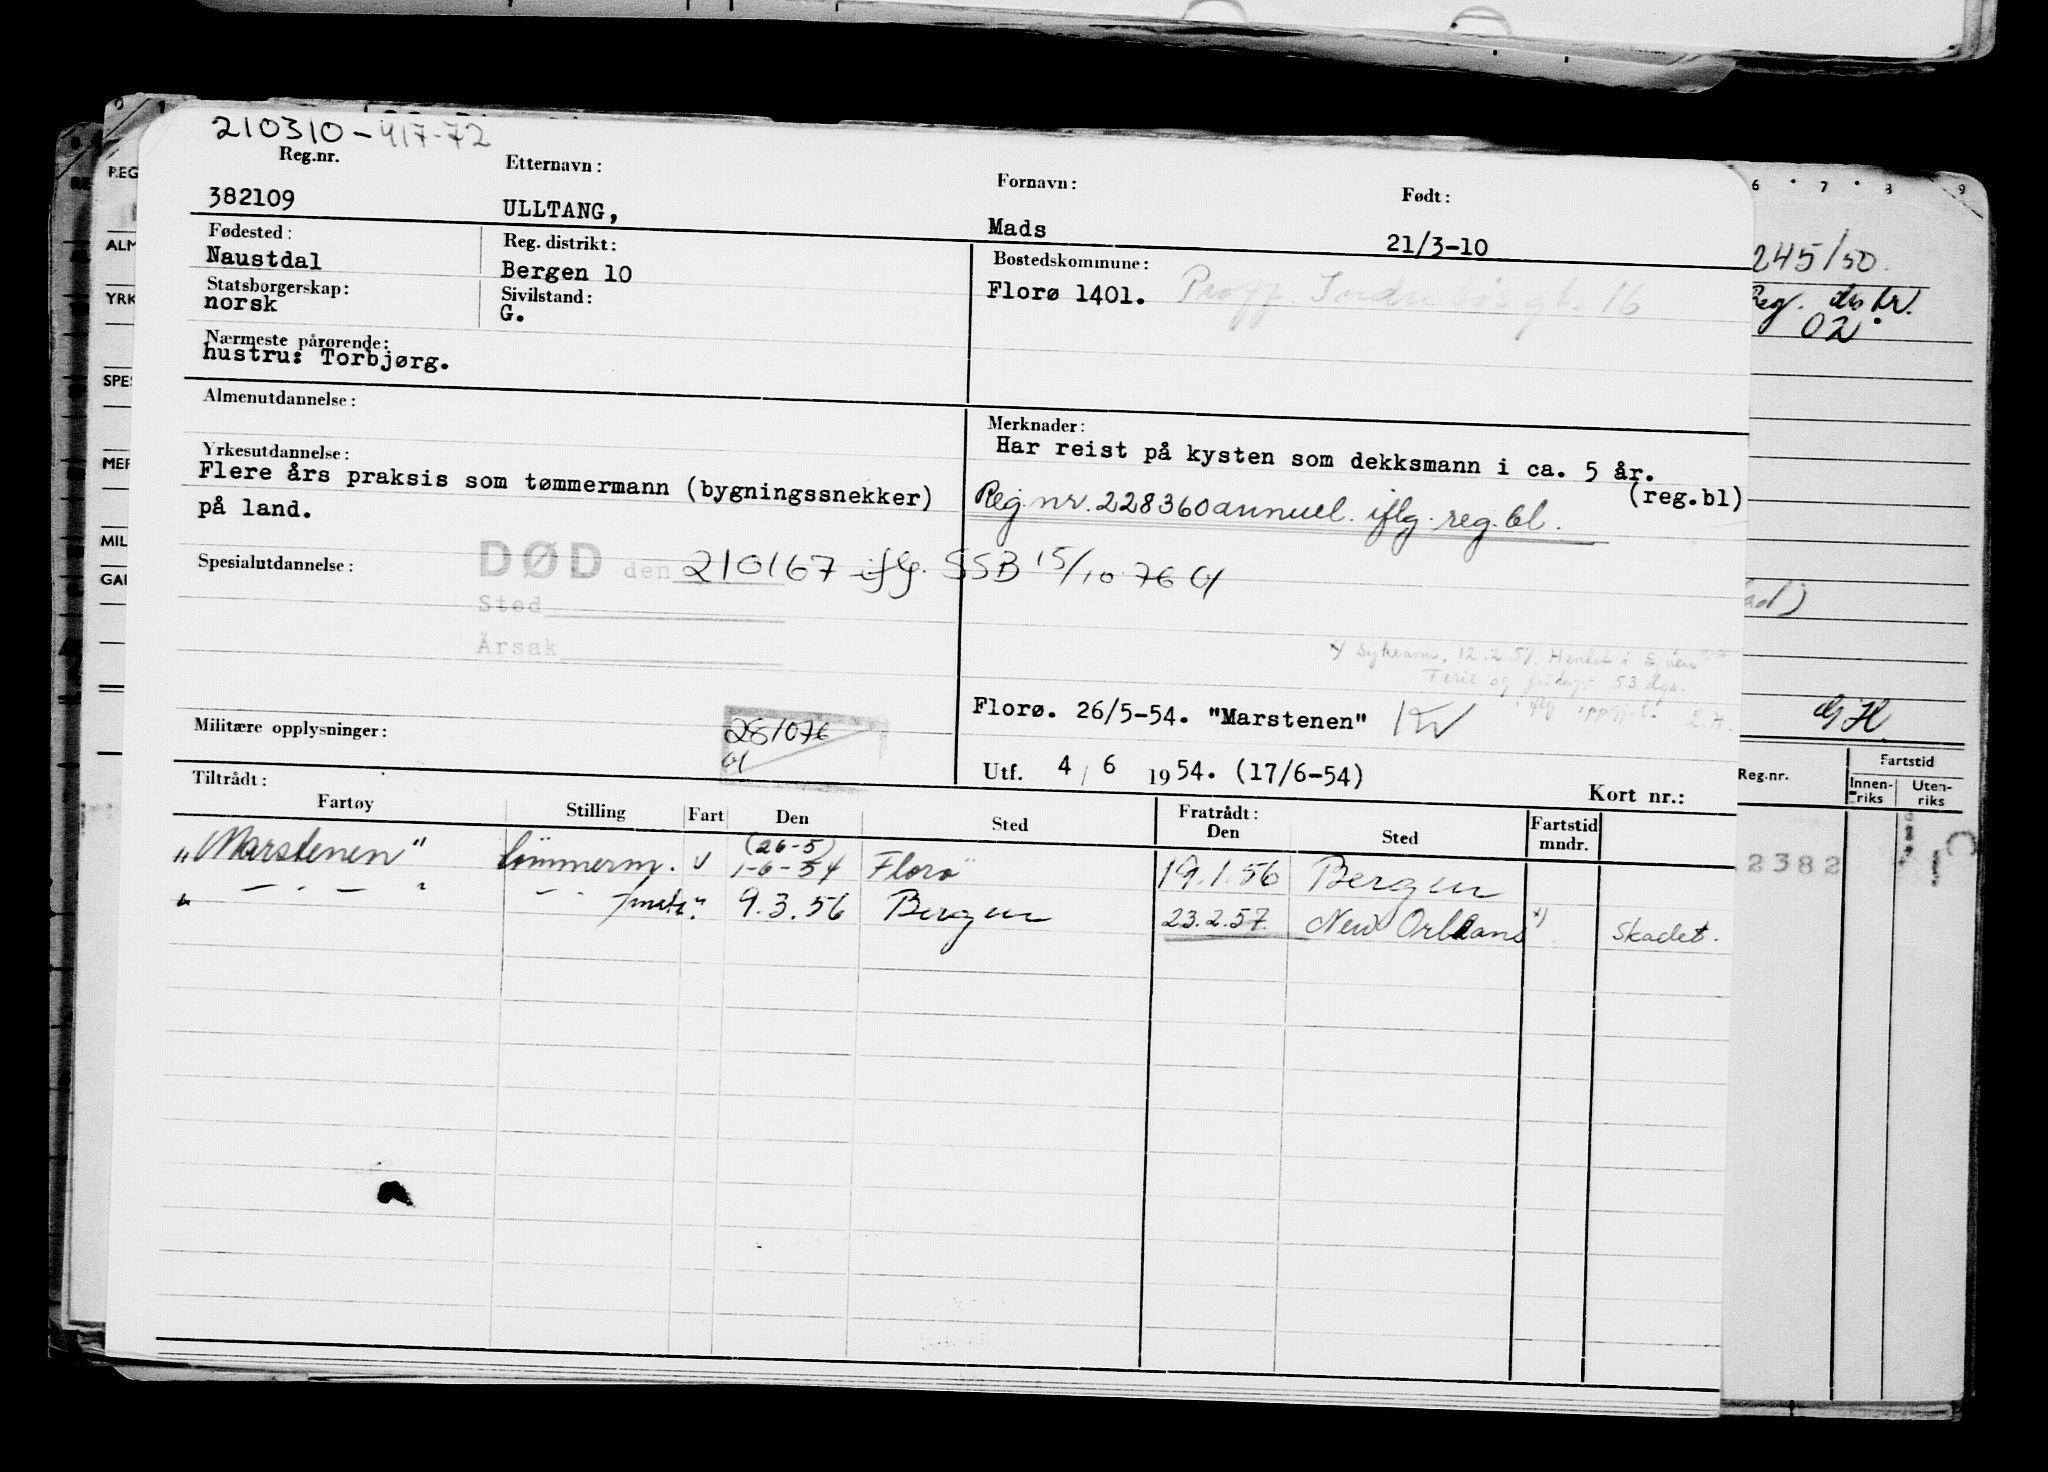 210310-417-72
Reg.nr. Etternavn: Fornavn: Født:
382109 ULLTANG, Mads 21/3-10
Fødested: Reg. distrikt: Bostedskommune:
Naustdal Bergen 10 Florø 1401.
Statsborgerskap: Sivilstand:
norsk G.
Nærmeste pårørende:
hustru: Torbjørg.
Almenutdannelse: Merknader:
Har reist på kysten som dekksmann i ca. 5 år.
(reg.bl)
Yrkesutdannelse:
Flere års praksis som tømmermann (bygningssnekker)
på land.
Reg.nr. 228360 annuel. iflg. reg.bl.
Spesialutdannelse: DØD den 210167 iflg. SSB 15/10 76
Sted
Årsak
12.2.57.
Ferie og 53 dgr.
Florø. 26/5-54. "Marstenen"
Militære opplysninger: 281076
Utf. 4/6 1954. (17/6-54) Kort nr.:
Tiltrådt: Fratrådt:
Fartøy Stilling Fart Den Sted Den Sted Fartstid mndr.
"Marstenen" tømmerm. u (26-5) 1-6-54 Florø 19.1.56 Bergen
" — " — " 9.3.56 Bergen 23.2.57. New Orleans x) Skadet.
6 7 8 9
245/50.
Reg. distr.
02
REG
ALM
YRK
SPES
MER
MIL
GAR
Reg.nr. Fartstid
Innen-riks Uten-riks
2382